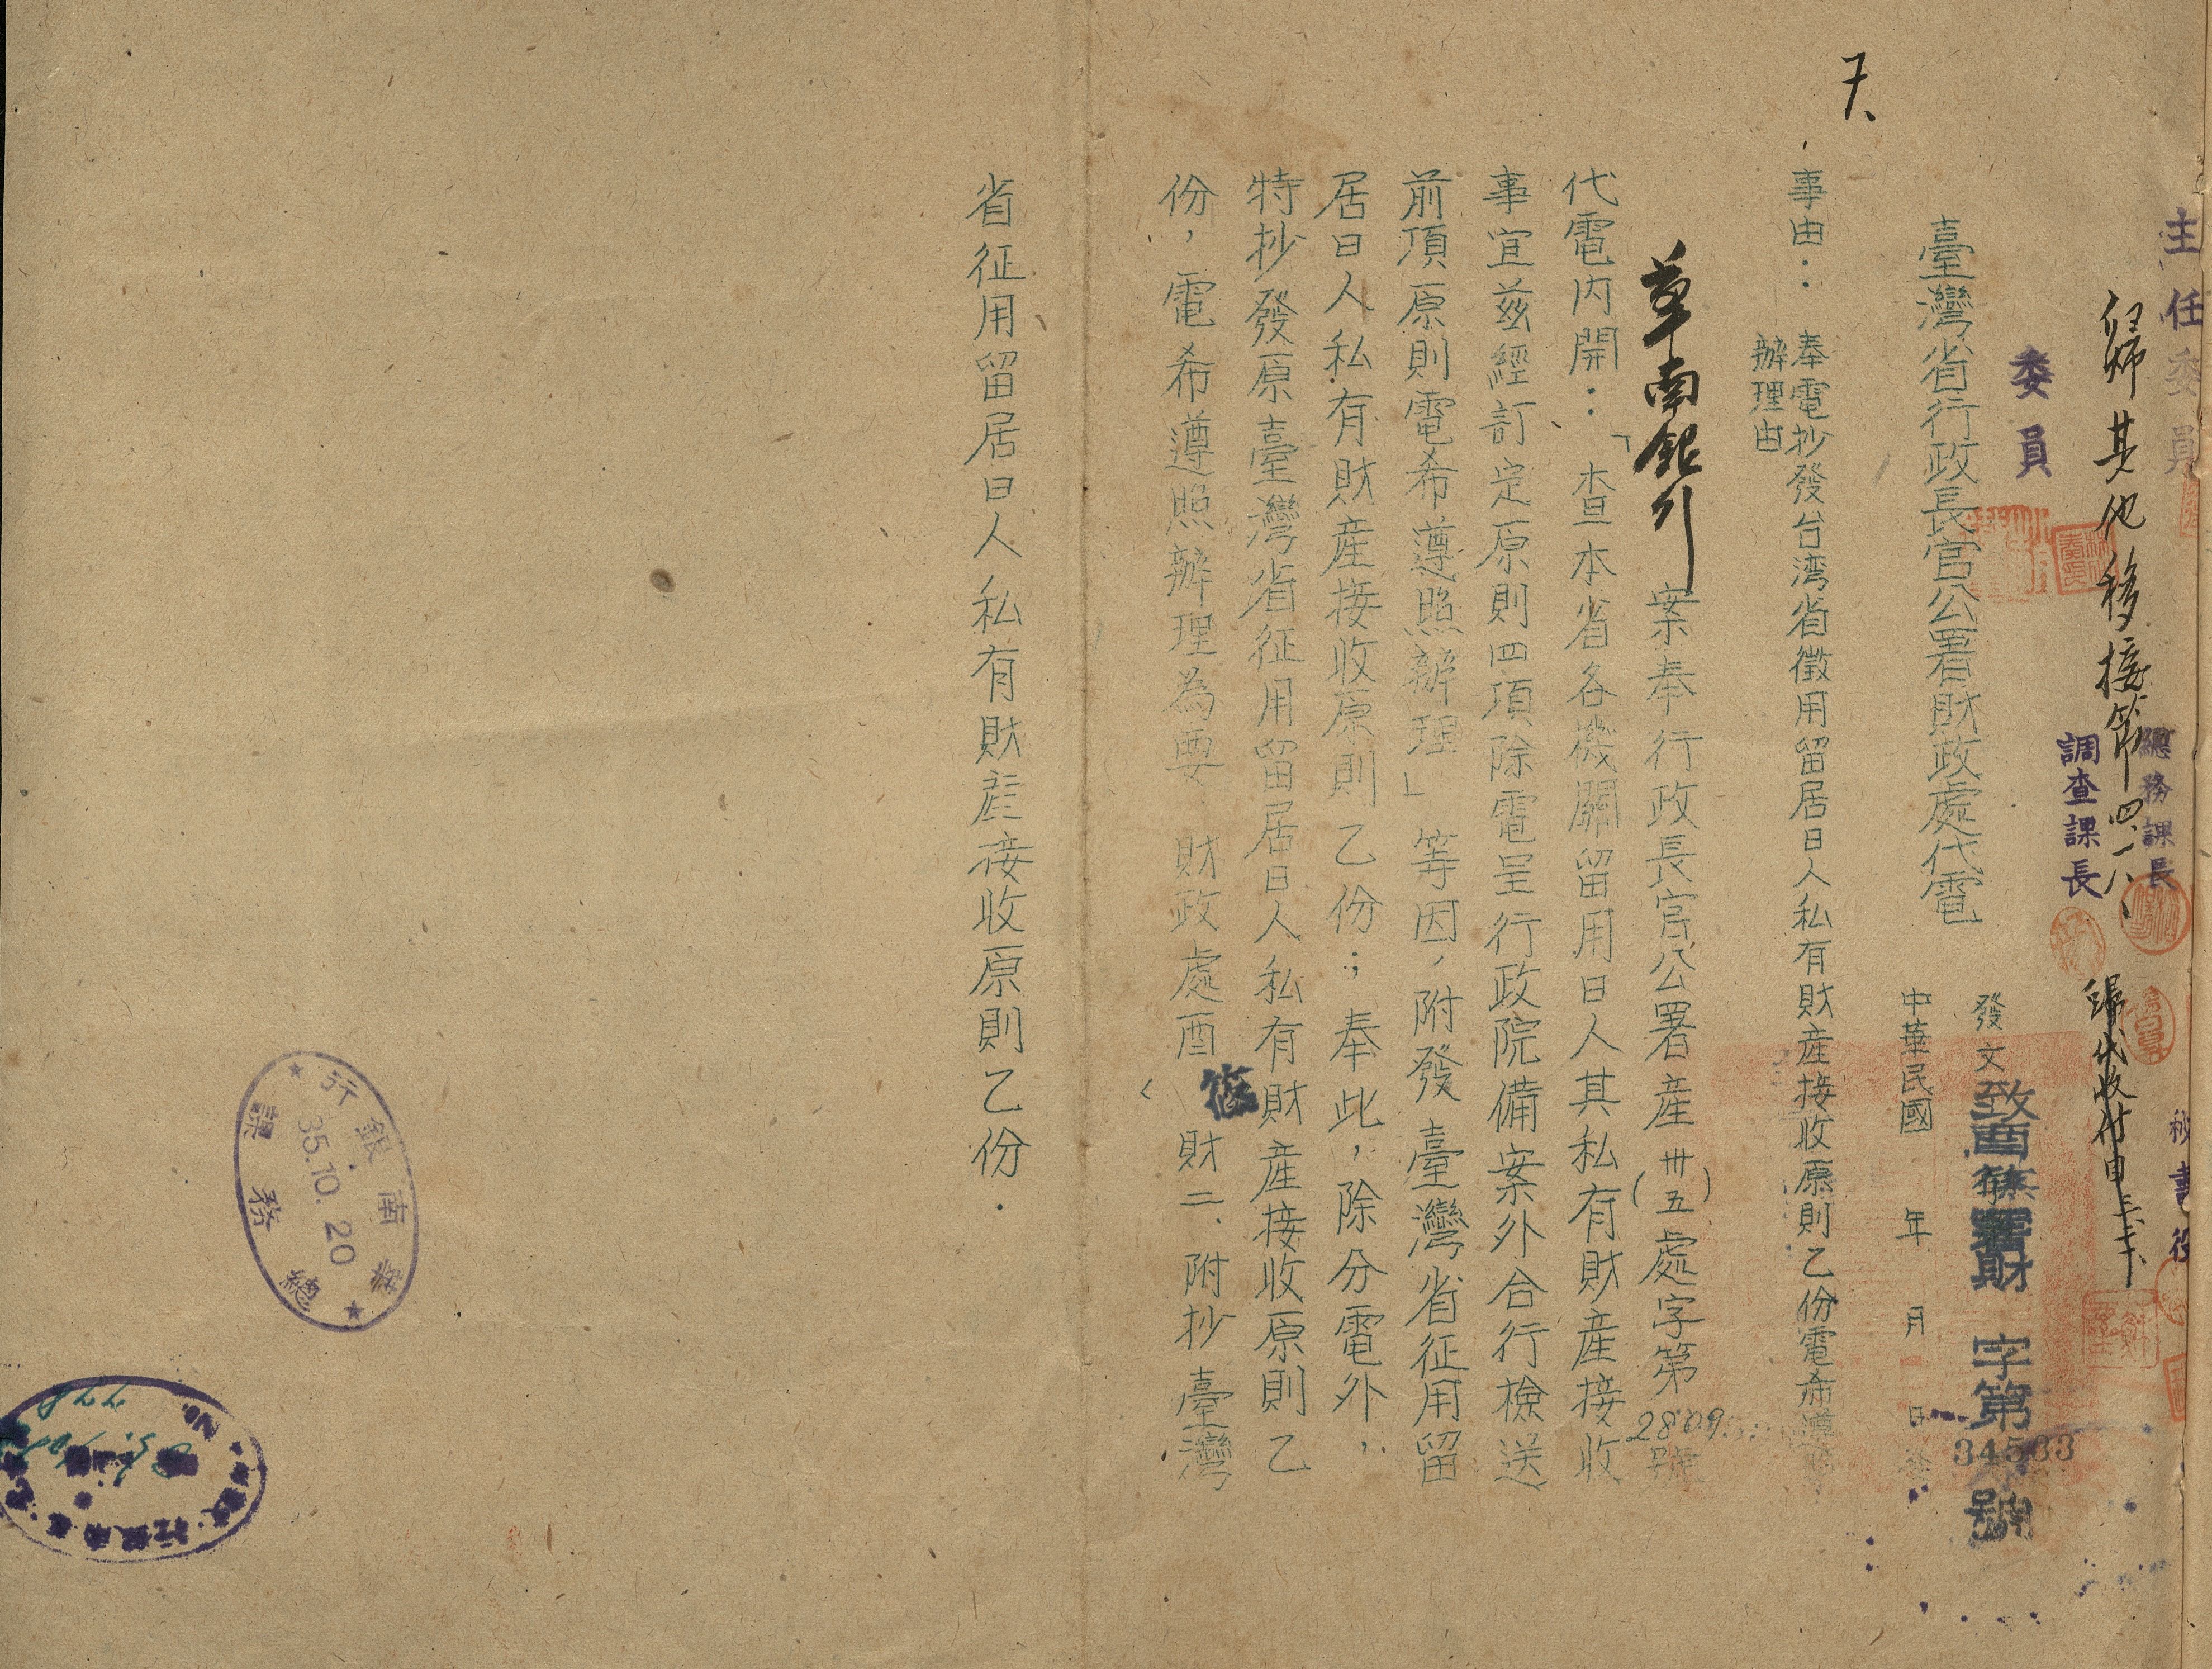 主任委員
歸其他移接第四一八、
總務課長
歸代收付
秘書役
委員
調查課長
臺灣省行政長官公署財政處代電
發文致酉篠署財字第34533號
中華民國 年 月 日
事由：奉電抄發台湾省徵用留居日人私有財產接收原則乙份電希遵照
辦理由
華南銀行 案奉行政長官公署產(卅五)處字第2809號
代電內開：「查本省各機關留用日人其私有財產接收
事宜茲經訂定原則四項除電呈行政院備案外合行檢送
前項原則電希遵照辦理」等因，附發臺灣省征用留
居日人私有財產接收原則乙份；奉此，除分電外，
特抄發原臺灣省征用留居日人私有財產接收原則乙
份，電希遵照辦理為要 財政處酉篠財二、附抄臺灣
省征用留居日人私有財產接收原則乙份．
華南銀行
35.10.20
總務課